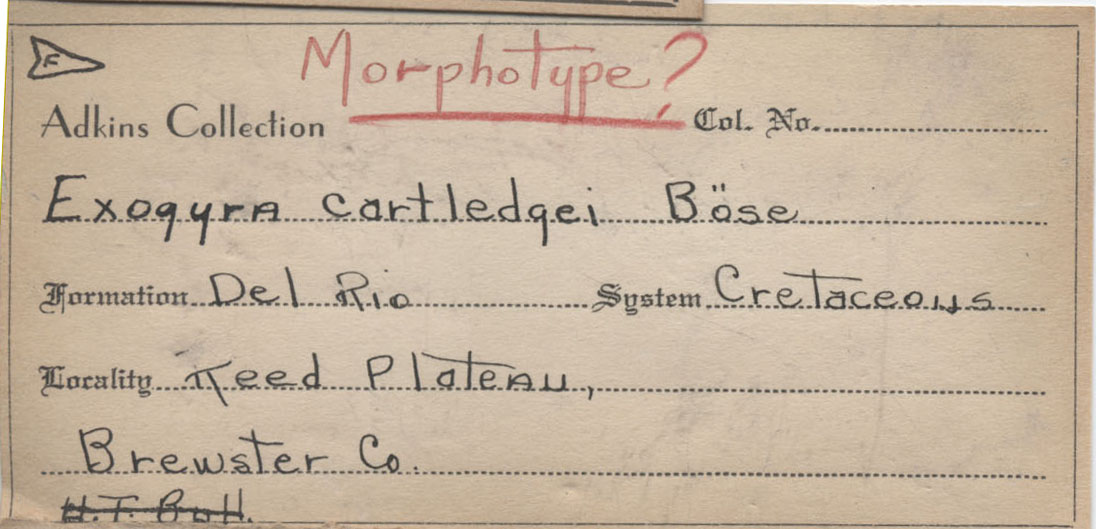 F
Morphotype?
Adkins Collection
Col. No.
Exogyra cartledgei Böse
Formation Del Rio System Cretaceous
Locality Reed Plateau,
Brewster Co.
H.T.